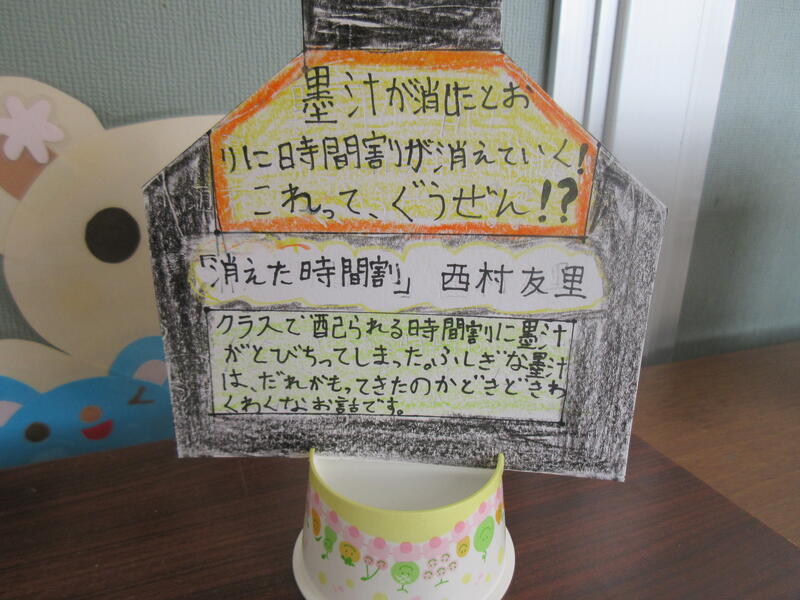 墨汁が消したとお
りに時間割が消えていく!
これって、ぐうぜん!?
「消えた時間割」 西村友里
クラスで配られる時間割に墨汁
がとびちってしまった。ふしぎな墨汁
は、だれがもってきたのかどきどきわ
くわくなお話です。